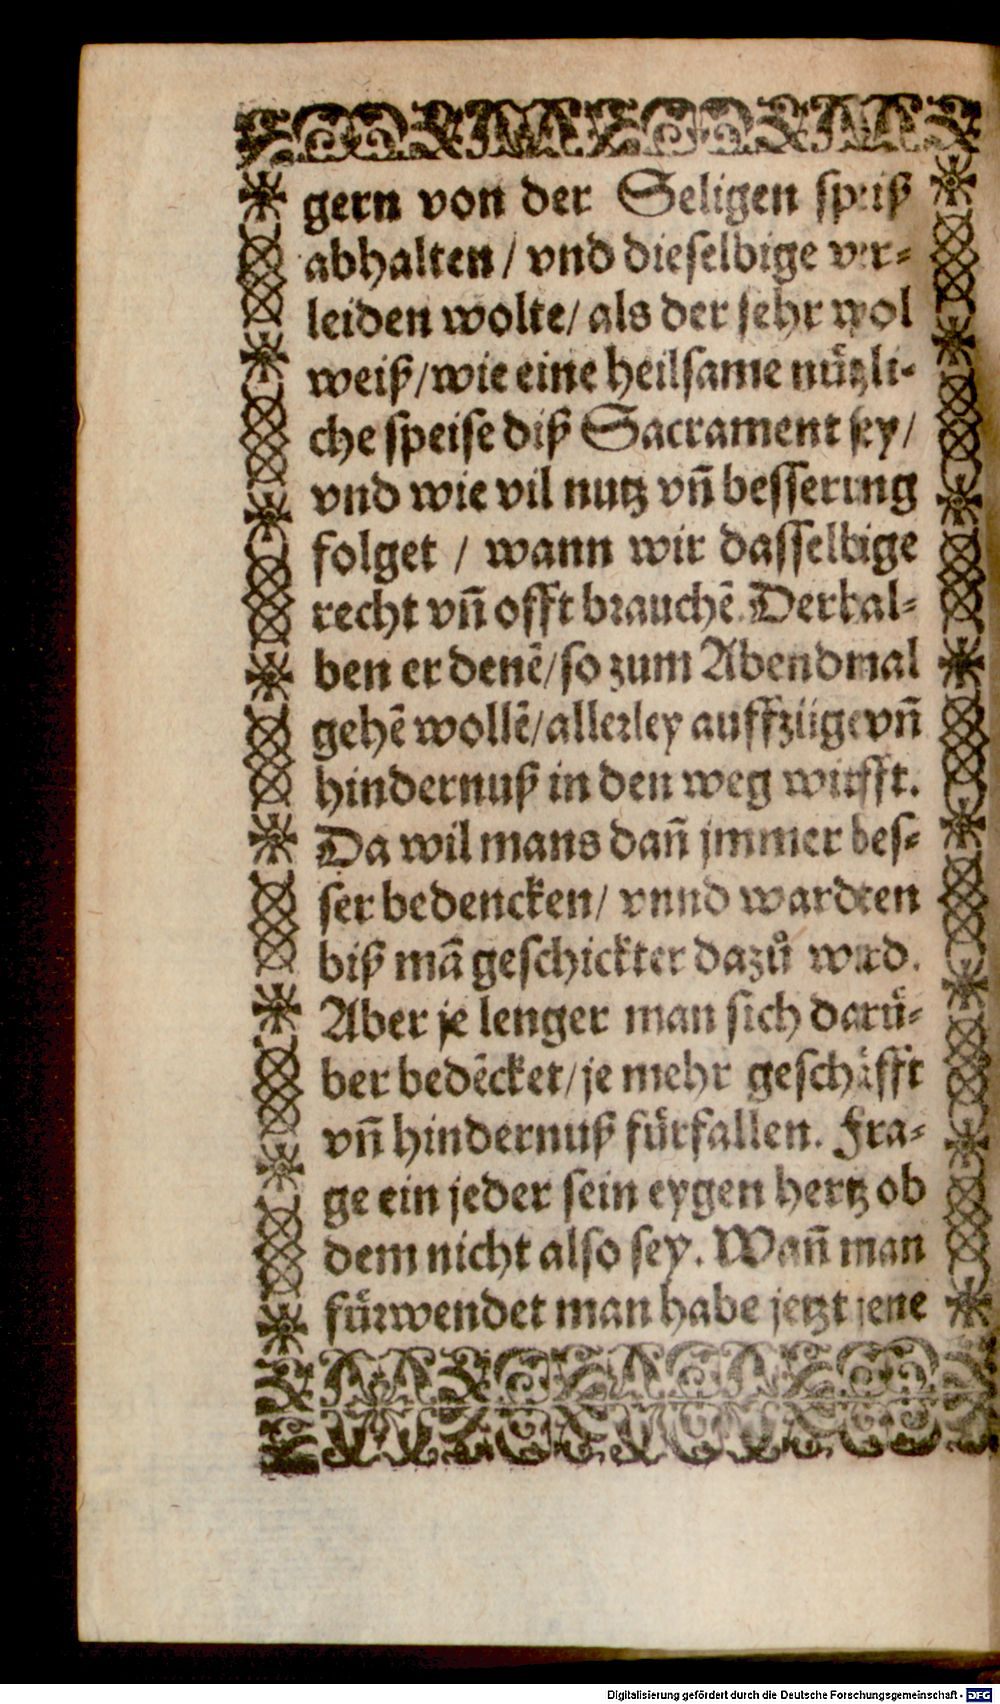 gern von der Seligen speiß
abhalten / vnd dieselbige ver-
leiden wolte / als der sehr wol
weiß / wie eine heilsame nützli-
che speise diß Sacrament sey /
vnd wie vil nutz vñ besserung
folget / wann wir dasselbige
recht vñ offt brauchẽ. Derhal-
ben er denẽ / so zum Abendmal
gehẽ wollẽ / allerley auffzüge vñ
hindernuß in den weg wirfft.
Da wil mans dañ jmmer bes-
ser bedencken / vnnd wardten
biß mã geschickter dazů wird.
Aber je lenger man sich darü-
ber bedẽcket / je mehr geschäfft
vñ hindernuß fürfallen. Fra-
ge ein jeder sein eygen hertz ob
dem nicht also sey. Wañ man
fürwendet man habe jetzt jene
Digitalisierung gefördert durch die Deutsche Forschungsgemeinschaft - DFG